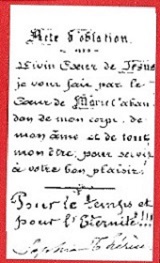 Acte d'oblation.
Divin Cœur de Jésus
je vous fais par le
Cœur de Marie l'aban
don de mon corps, de
mon âme et de tout
mon être, pour servir
à votre bon plaisir!
Pour le temps et
pour l'Éternité!!!
Sophie Thérèse